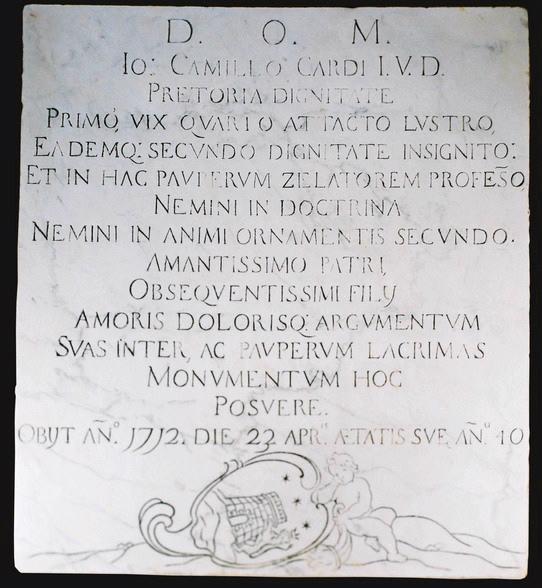 D. O. M.
IO: CAMILLO CARDI I.V.D.
PRETORIA DIGNITATE
PRIMO, VIX QVARTO ATTACTO LVSTRO,
EADEMQ: SECVNDO DIGNITATE INSIGNITO:
ET IN HAC PAVPERVM ZELATOREM PROFES̄O
NEMINI IN DOCTRINA
NEMINI IN ANIMI ORNAMENTIS SECVNDO.
AMANTISSIMO PATRI,
OBSEQVENTISSIMI FILY
AMORIS DOLORISQ: ARGVMENTVM
SVAS INTER, AC PAVPERVM LACRIMAS
MONVMENTVM HOC
POSVERE.
OBIJT AÑ.º 1712. DIE 23 APR. ÆTATIS SVE AÑ.º